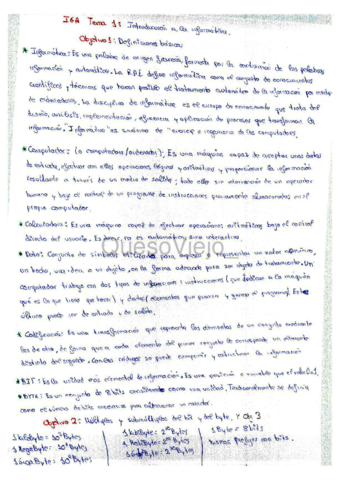 IGA Tema 1: Introducción a la informática.
Objetivo 1: Definiciones básicas
* Informática: Es una palabra de origen francés formada por la contracción de las palabras
información y automática. La R.A.E define informática como el conjunto de conocimientos
científicos y técnicas que hacen posible el tratamiento automático de la información por medio
de ordenadores. La disciplina de informática es el cuerpo de conocimiento que trata del
diseño, análisis, implementación, eficiencia y aplicación de procesos que transforman la
información. "Informática" es sinónimo de "ciencia e ingeniería de los computadores".
* Computador: (o computadora/ordenador): Es una máquina capaz de aceptar unos datos
de entrada, efectuar con ellos operaciones lógicas y aritméticas y proporcionar la información
resultante a través de un medio de salida; todo ello sin intervención de un operador
humano y bajo el control de un programa de instrucciones previamente almacenadas en el
propio computador.
* Calculadora: Es una máquina capaz de efectuar operaciones aritméticas bajo el control
directo del usuario. Es decir, no es automático, sino interactiva.
* Dato: Conjunto de símbolos utilizados para expresar o representar un valor numérico,
un hecho, una idea o un objeto, en la forma adecuada para ser objeto de tratamiento. Un
computador trabaja con dos tipos de información: instrucciones (que indican a la máquina
qué es lo que tiene que hacer) y datos (elementos que procesa y genera el programa). Este
último puede ser de entrada o de salida.
* Codificación: Es una transformación que representa los elementos de un conjunto mediante
los de otro, de forma que a cada elemento del primer conjunto le corresponde un elemento
distinto del segundo. Con los códigos se puede comprimir y estructurar la información
* BIT: Es la unidad más elemental de información. Es una posición o variable que el valor 0,1.
* BYTE: Es un conjunto de 8 bits considerado como una unidad. Tradicionalmente se definía
como el número de bits necesarios para almacenar un carácter.
Objetivo 2: Múltiplos y submúltiplos del bit y del byte, y Obj 3
1 KiloByte = 10³ Bytes 1 KibiByte = 2¹⁰ Bytes 1 Byte = 8 bits
1 MegaByte = 10⁶ Bytes 1 MebiByte = 2²⁰ Bytes mismos prefijos con bits.
1 GigaByte = 10⁹ Bytes 1 GibiByte = 2³⁰ Bytes
QuesoViejo